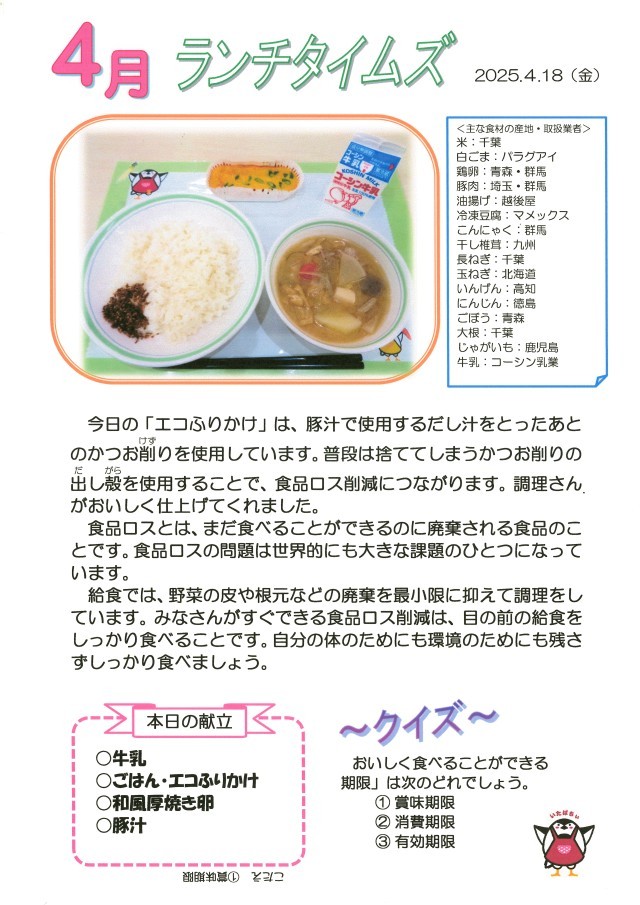 4月 ランチタイムズ 2025.4.18（金）
コーシン牛乳
KOSHIN MILK
コーシン牛乳
＜主な食材の産地・取扱業者＞
米：千葉
白ごま：パラグアイ
鶏卵：青森・群馬
豚肉：埼玉・群馬
油揚げ：越後屋
冷凍豆腐：マメックス
こんにゃく：群馬
干し椎茸：九州
長ねぎ：千葉
玉ねぎ：北海道
いんげん：高知
にんじん：徳島
ごぼう：青森
大根：千葉
じゃがいも：鹿児島
牛乳：コーシン乳業
今日の「エコふりかけ」は、豚汁で使用するだし汁をとったあと
けず
のかつお削りを使用しています。普段は捨ててしまうかつお削りの
だ がら
出し殻を使用することで、食品ロス削減につながります。調理さん
がおいしく仕上げてくれました。
食品ロスとは、まだ食べることができるのに廃棄される食品のこ
とです。食品ロスの問題は世界的にも大きな課題のひとつになって
います。
給食では、野菜の皮や根元などの廃棄を最小限に抑えて調理をし
ています。みなさんがすぐできる食品ロス削減は、目の前の給食を
しっかり食べることです。自分の体のためにも環境のためにも残さ
ずしっかり食べましょう。
本日の献立
○牛乳
○ごはん・エコふりかけ
○和風厚焼き卵
○豚汁
～クイズ～
おいしく食べることができる
期限」は次のどれでしょう。
① 賞味期限
② 消費期限
③ 有効期限
いたばちぃ
こたえ ①賞味期限